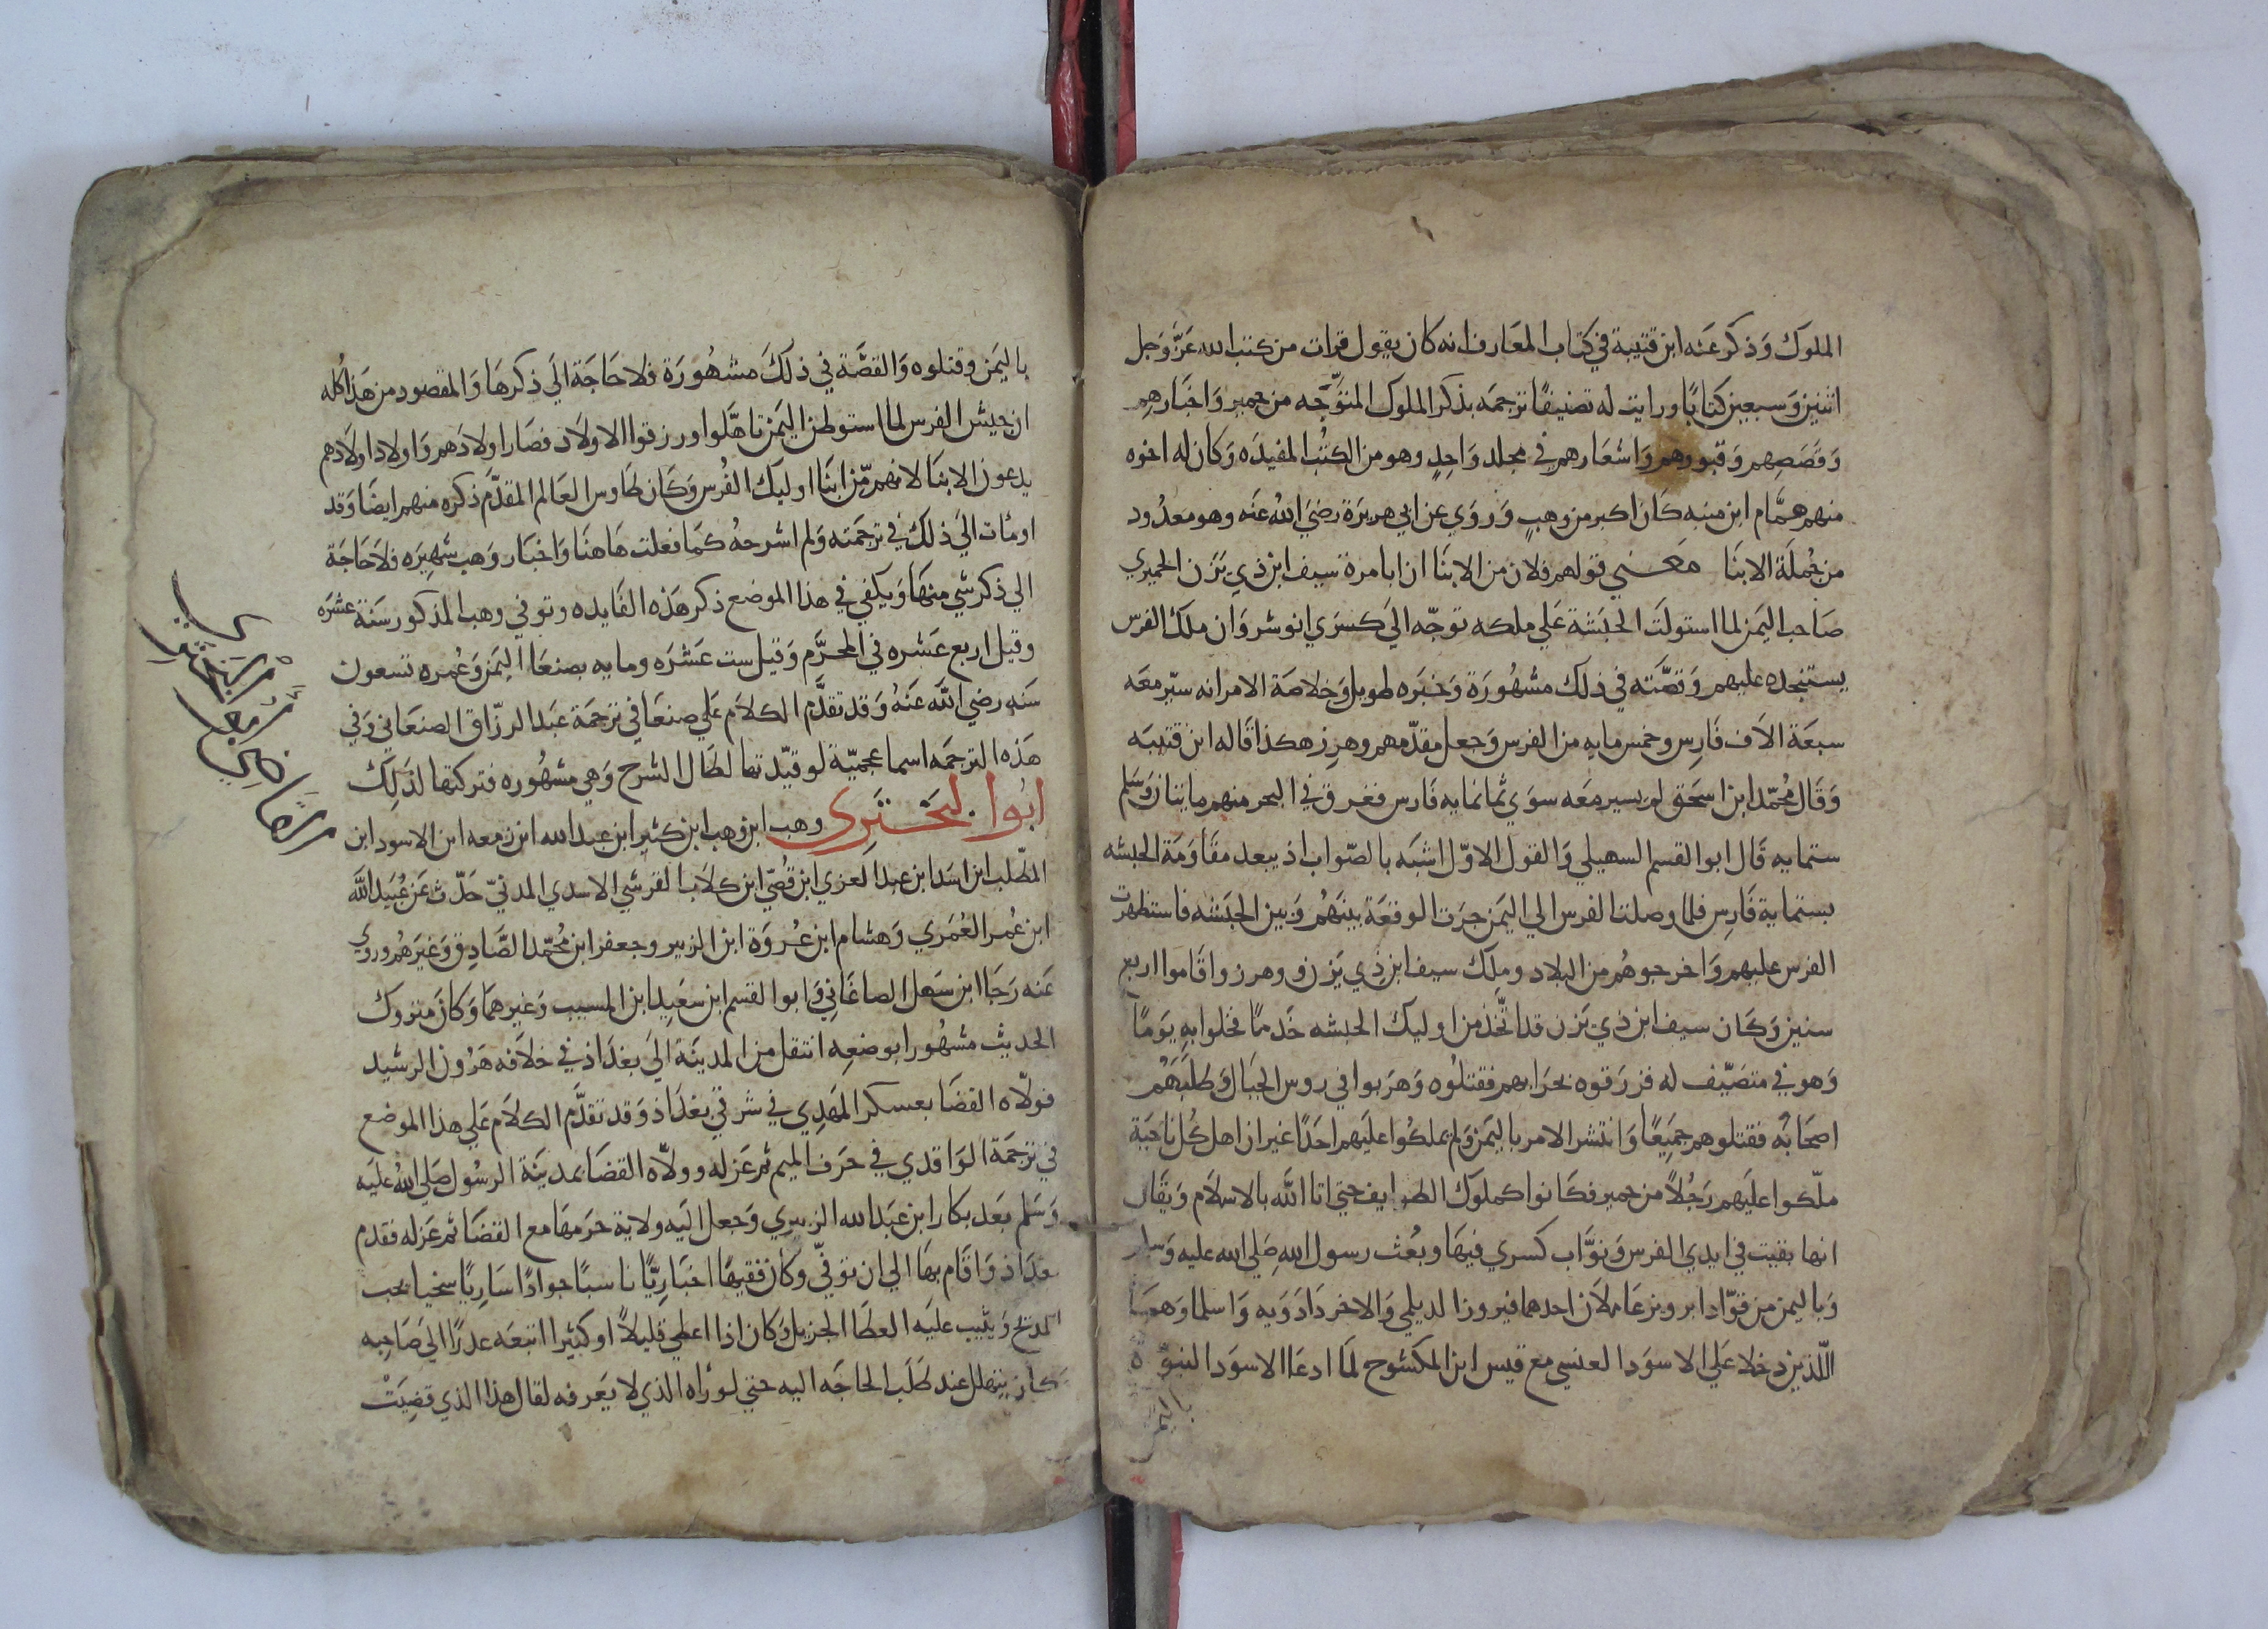 الملوك وذكر عنه ابن قتيبة في كتاب المعارف انه كان يقول قرات من كتب الله عَزَّ وَجل
اثنين وَسبعين كتابًا ورايت له تصنيفًا ترجمَه بذكر الملوك المتوَّجه من حمير وَاخبَارهم
وَقصَصِهم وَقبورهم وَاشعَارهم في مجلد وَاحِدٍ وهو من الكتُب المفيدَه وَكان له اخوه
منهم همَّام ابن منبه كَان اكبر من وهبٍ وَروَي عن ابي هريرَة رضيَ اللهُ عَنه وهو معدُود
من جُملَة الابنَا مَعـنـي قولهم فلان من الابنَا ان ابا مرة سَيف ابن ذي يَزَن الحميري
صَاحب اليَمن لما استولَت الحبَشة عَلي ملكه توجّه الَي كسرَي انوشروَان ملك الفرس
يستنجده عليهم وَقصَّته في ذلك مشهُورَة وَخبَره طويل وَخلاصَة الامر انه سيّر معَه
سبعَة الاَف فَارِس وخمس مايه من الفرس وَجعل مقدّمهم وهرِز هكذا قَاله ابن قتيبَه
وَقَال مُحمّد ابن اسحَق لم يسير معَه سوَي ثمانمايه فَارس فغرق في البحر منهم مايتان وَسَلم
ستمايه قَال ابو القسم السهيلي وَالقول الاوّل اشبَه بالصّواب اذ يبعد مقَاوَمَة الحبشه
بستماية فَارِس فلما وصلت الفرس الي اليَمن جَرَت الوقعَة بينَهُم وَبين الحبَشه فاستظهرت
الفرس عليهم وَاخرجوهُم من البلاد وملِك سيف ابن ذِي يَزن و وهرز واقَاموا اربع
سنين وَكَان سيف ابن ذي يَزن قد اتَّخذ من اوليك الحبشه خَدمًا فخلوا به يَومًا
وَهو في متصَيّف له فزرَقوه بحرَابهم فقتلُوه وَهرَبوا في روس الجبَال وَطلبَهُم
اصحَابُه فقتلوهم جَميعًا وَانتشر الامر باليمَن وَلم يملكُوا علَيهم احَدًا غير ان اهل كُل ناحيَة
ملّكوا علَيهم رَجُلاً من حمير فكَانوا كملوك الطوايف حتي اتا اللَّه بالاسلاَم وَيقَال
انها بقيت في ايدي الفرس وَنوَّاب كسري فيهَا وبُعث رسول اللهِ صَلي الله عليه وَسلم
وَباليمن من قوّاد ابرويز عَاملاَن احدهما فيروز الديلمي وَالاخر دَادَويه وَاسلما وَهمَا
اللّذين دخلا عَلي الاسوَد العنسي مع قيس ابن المكشوح لمَا ادعَا الاسوَد النبوّة
باليمن
باليَمن وقتلوه وَالقصَّة في ذلكَ مشهُورَة فلا حَاجَة الَي ذكرهَا وَالمقصود من هَذا كله
ان جيش الفرس لما استوطن اليَمن تاهَّلوا ورزقوا الاولاَد فصَار اولادَهم وَاولاد اولاَدهم
يدعون الابنَا لانهم مّن ابنَا اوليك الفُرس وَكَان طَاوس العَالم المقدَّم ذكره منهم ايضَا وَقد
اومَات الَي ذلكَ في ترجَمته وَلم اشرحهُ كمَا فعلت هَاهنَا وَاخبَار وَهب شهِيرَه فلاَ حَاجَة
الي ذكر شي منهَا وَيكفي في هذا الموضع ذكر هَذه الفَايده وتوفي وهب المذكور سَنة عشرَه
وقيل اربع عَشره في المحرَّم وَقيل ست عَشرَه ومايه بصنعَا اليمَن وَعُمره تسعون
سَنه رضيَ اللَّه عَنهُ وَقد تقدَّم الكلاَم عَلي صنعَا في ترجمَة عبَد الرزّاق الصنعَاني وَفي
هَذه الترجمَه اسما عجميّة لو قيّدتها لطَال الشرح وَهي مشهُوره فتركتها لذلِك
ابُوا البَخـتَرِي وهب ابن وهب ابن كثير ابن عبد الله ابن زمعه ابن الاسود ابن
المطّلب ابن اسَد ابن عبد العزي ابن قُصَيّ ابن كلاَب القرشي الاسدي المدنيّ حَدّث عَن عُبَيد اللَّه
ابن عُمر العُمَري وَهشام ابن عُروَة ابن الزبير وجعفر ابن مُحمّد الصَّادِق وَغيرَهُم وروي
عَنه رَجَا ابن سَهل الصاغَاني وَابوا القسم ابن سعَيِد ابن المسيب وَغيرهمَا وَكَان متروك
الحديث مشهُورا بوضعِه انتقل من المدينَة اليَ بغدَاذ في خلاَفه هَرُون الرشيد
فولّاه القضَا بعسكر المَهدِي في شرقي بغدَاذ وَقد تقدَّم الكلاَم عَلي هذا الموضع
في ترجمَة الوَاقدي في حرَف الميم ثم عَزله وولاّه القضَا بمدينَة الرسُول صَلي اللهُ علَيه
وَسَلم بعَد بكار ابن عبَد الله الزبيري وَجعل اليَه ولاية حرَمهَا مع القضَا ثم عَزله فقدم
بغدَاذ وَاقَام بهَا الي ان توفّي وكاَن فقيهًا اخبَارِيًّا ناسبًا جوادًا سَارِيًا سَخيا يحب
المدح وَيثيب علَيه العطَا الجزيل وَكان اذا اعطي قليلاً او كثيرا اتبعَه عذرًا الي صَاحِبه
كان يتهلل عند طَلَب الحاجَه اليه حتي لو رَاه الذي لا يَعرفه لقال هذا الذي قضيَتْ